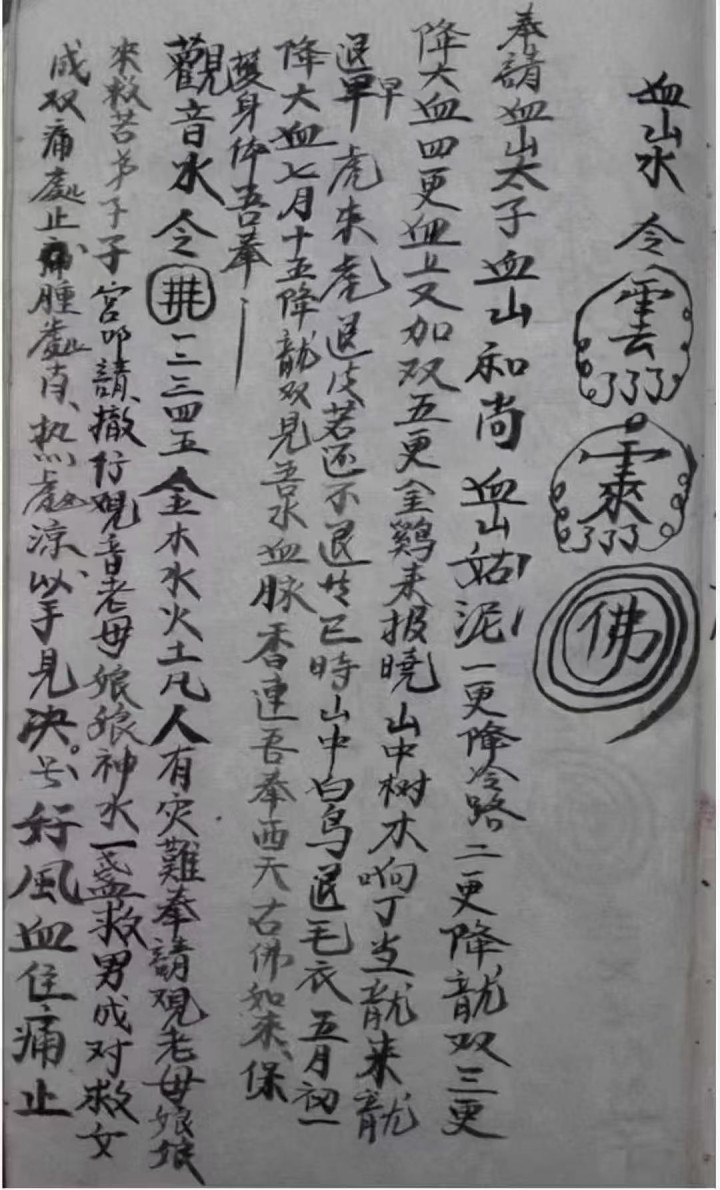 血山水 令 雲 靈 佛
奉請血山太子血山和尚血山姑泥一更降冷路二更降龍双三更
降大血四更血上又加双五更金鷄来报曉山中树木响丁当龍来龍
退早虎来虎退皮若还不退 巳時山中白鸟退毛衣五月初一
降大血七月十五降龍双見吾水血脉香連吾奉西天古佛如来保
護身体吾奉
觀音水令井一二三四五金木水火土凡人有灾難奉請观老母娘娘
来救苦弟子子宫叩請撤行观音老母娘娘神水一盏救男成对救女
成双痛處止痛腫處消热處凉以手見决 好風血住痛止